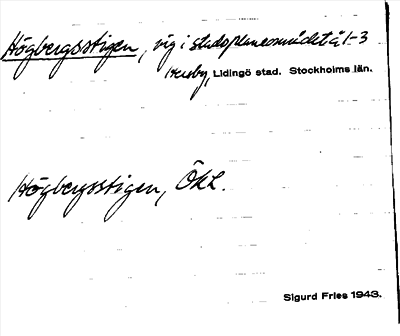 Högbergsstigen, väg i stadsplaneområdet å 1-3
Hersby, Lidingö stad. Stockholms län.
Högbergsstigen, Ökl.
Sigurd Fries 1943.